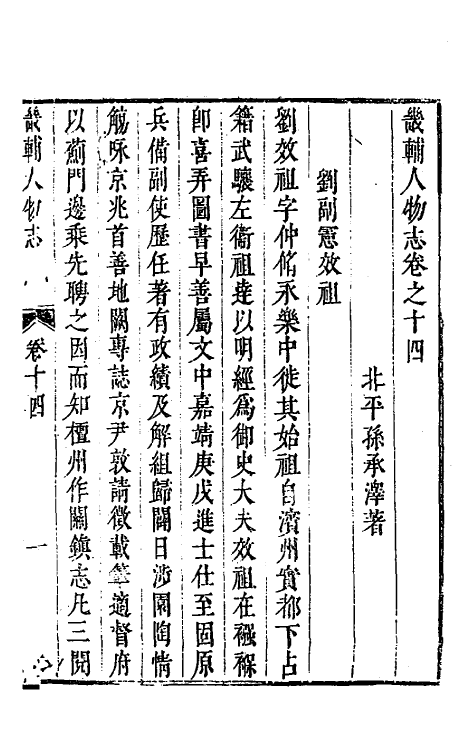 畿輔人物志卷之十四
北平孫承澤著
劉副憲效祖
劉效祖字仲脩永樂中徙其始祖自濱州實都下占
籍武驤左衛祖達以明經為御史大夫效祖在襁褓
即喜弄圖書早善屬文中嘉靖庚戌進士仕至固原
兵備副使歷任著有政績及解組歸闢日涉園陶情
觴咏京兆首善地闕專誌京尹敦請徵載筆適督府
以薊門邊乘先聘之因而知檀州作關鎮志凡三閱
畿輔人物志
卷十四
一